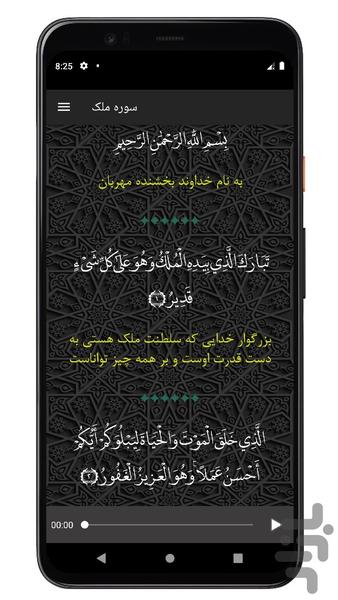 8:25
سوره ملک
بِسْمِ اللَّهِ الرَّحْمَٰنِ الرَّحِيمِ
به نام خداوند بخشنده مهربان
تَبَارَكَ الَّذِي بِيَدِهِ الْمُلْكُ وَهُوَ عَلَىٰ كُلِّ شَيْءٍ
قَدِيرٌ ﴿١﴾
بزرگوار خدایی که سلطنت ملک هستی به
دست قدرت اوست و بر همه چیز تواناست
الَّذِي خَلَقَ الْمَوْتَ وَالْحَيَاةَ لِيَبْلُوَكُمْ أَيُّكُمْ
أَحْسَنُ عَمَلًا ۚ وَهُوَ الْعَزِيزُ الْغَفُورُ ﴿٢﴾
00:00